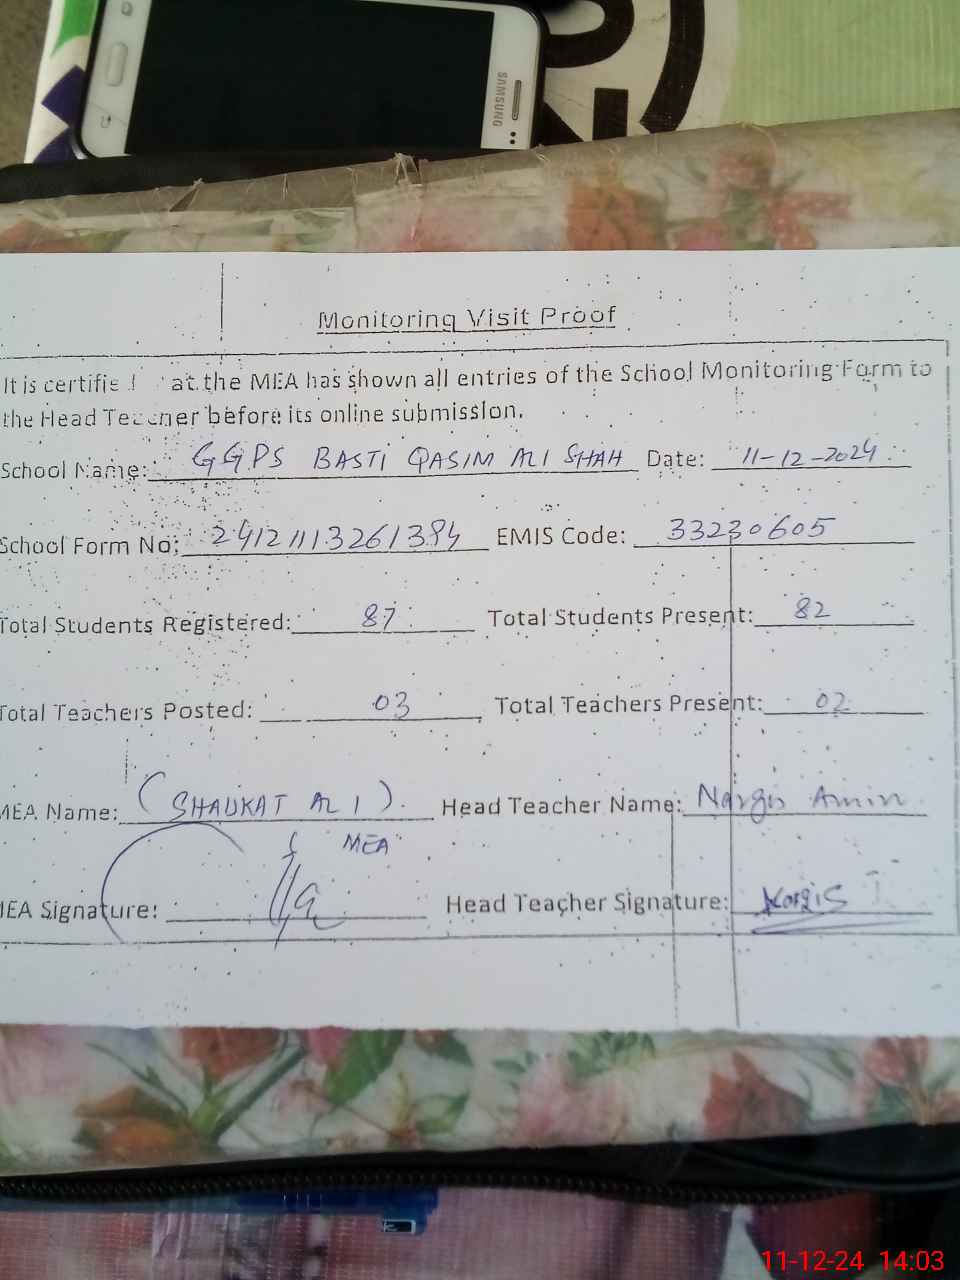 SAMSUNG
Monitoring Visit Proof
It is at the MEA has shown all entries of the School Monitoring Form to
the Head before its online submission.
School Name: GGPS BASTI QASIM ALI SHAH Date: 11-12-2024
School Form No: 24121113261384 EMIS Code: 33230605
Total Students Registered: 87 Total Students Present: 82
Total Teachers Posted: 03 Total Teachers Present: 02
MEA Name: (SHAUKAT ALI) Head Teacher Name: Nargis Amin
MEA
MEA Signature: Head Teacher Signature: Nargis
11-12-24 14:03